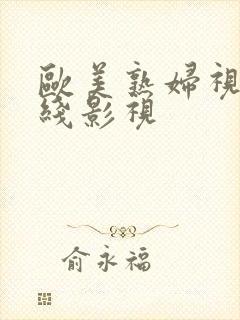 歐美熟婦視
綫影視
俞永福